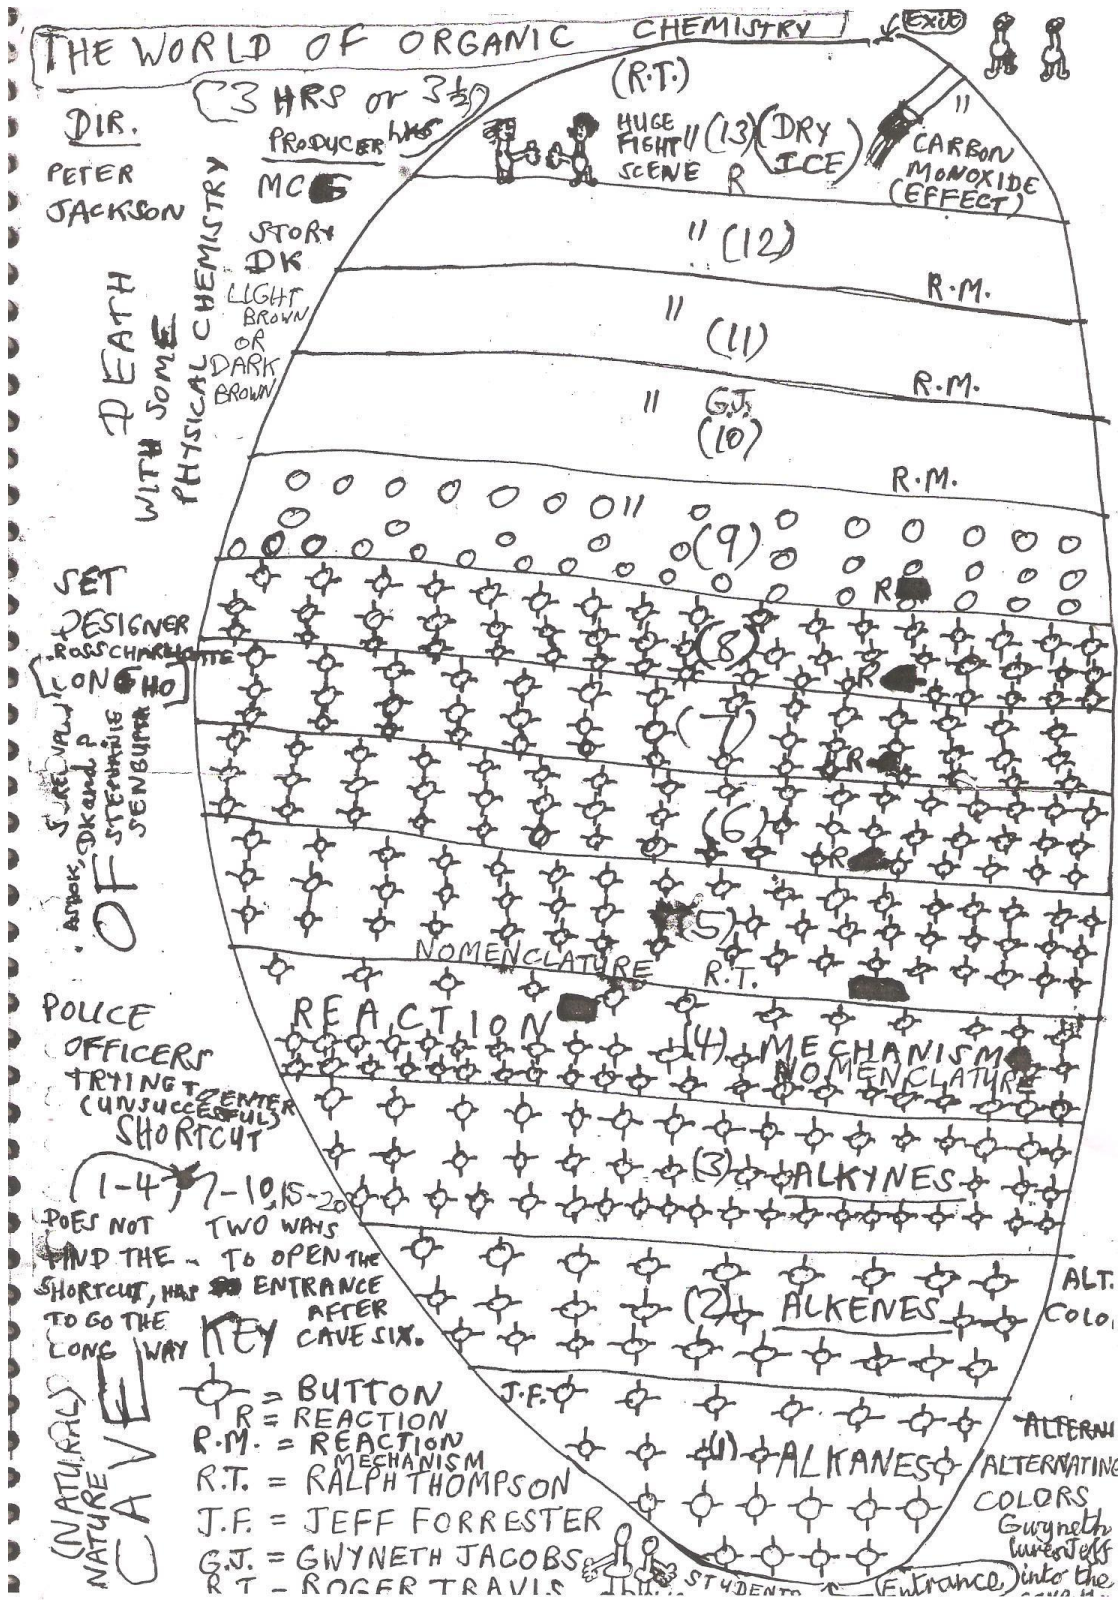 THE WORLD OF ORGANIC CHEMISTRY
EXIT
(3 HRS or 3½) HRS
(R.T.)
DIR.
PETER
JACKSON
PRODUCER
STORY
DK
LIGHT
BROWN
OR
DARK
BROWN
DEATH
WITH SOME
PHYSICAL CHEMISTRY
HUGE
FIGHT
SCENE
" (13) (DRY
ICE)
R
"
CARBON
MONOXIDE
(EFFECT)
" (12)
R.M.
" (11)
R.M.
" G.J.
(10)
R.M.
"
(9)
R
(8)
R
(7)
R
(6)
R
(5)
NOMENCLATURE R.T.
REACTION (4) MECHANISM
NOMENCLATURE
(3) ALKYNES
(2) ALKENES
ALT.
COLO
J.F.
(1) ALKANES
SET
DESIGNER
ROSS CHARLOTTE
STEPHANIE
SENGUPTA
DK and P
OF
POLICE
OFFICERS
TRYING TO ENTER
(UNSUCCESSFUL)
SHORTCUT
1-4 7-10, 15-20
DOES NOT
FIND THE
SHORTCUT, HAS
TO GO THE
LONG WAY
TWO WAYS
TO OPEN THE
ENTRANCE
AFTER
CAVE SIX.
(NATURAL)
NATURE
CAVE
KEY
= BUTTON
R = REACTION
R.M. = REACTION
MECHANISM
R.T. = RALPH THOMPSON
J.F. = JEFF FORRESTER
G.J. = GWYNETH JACOBS
R T - ROGER TRAVIS
STUDENTS
(Entrance)
ALTERNATING
COLORS
Gwyneth
lures Jeff
into the